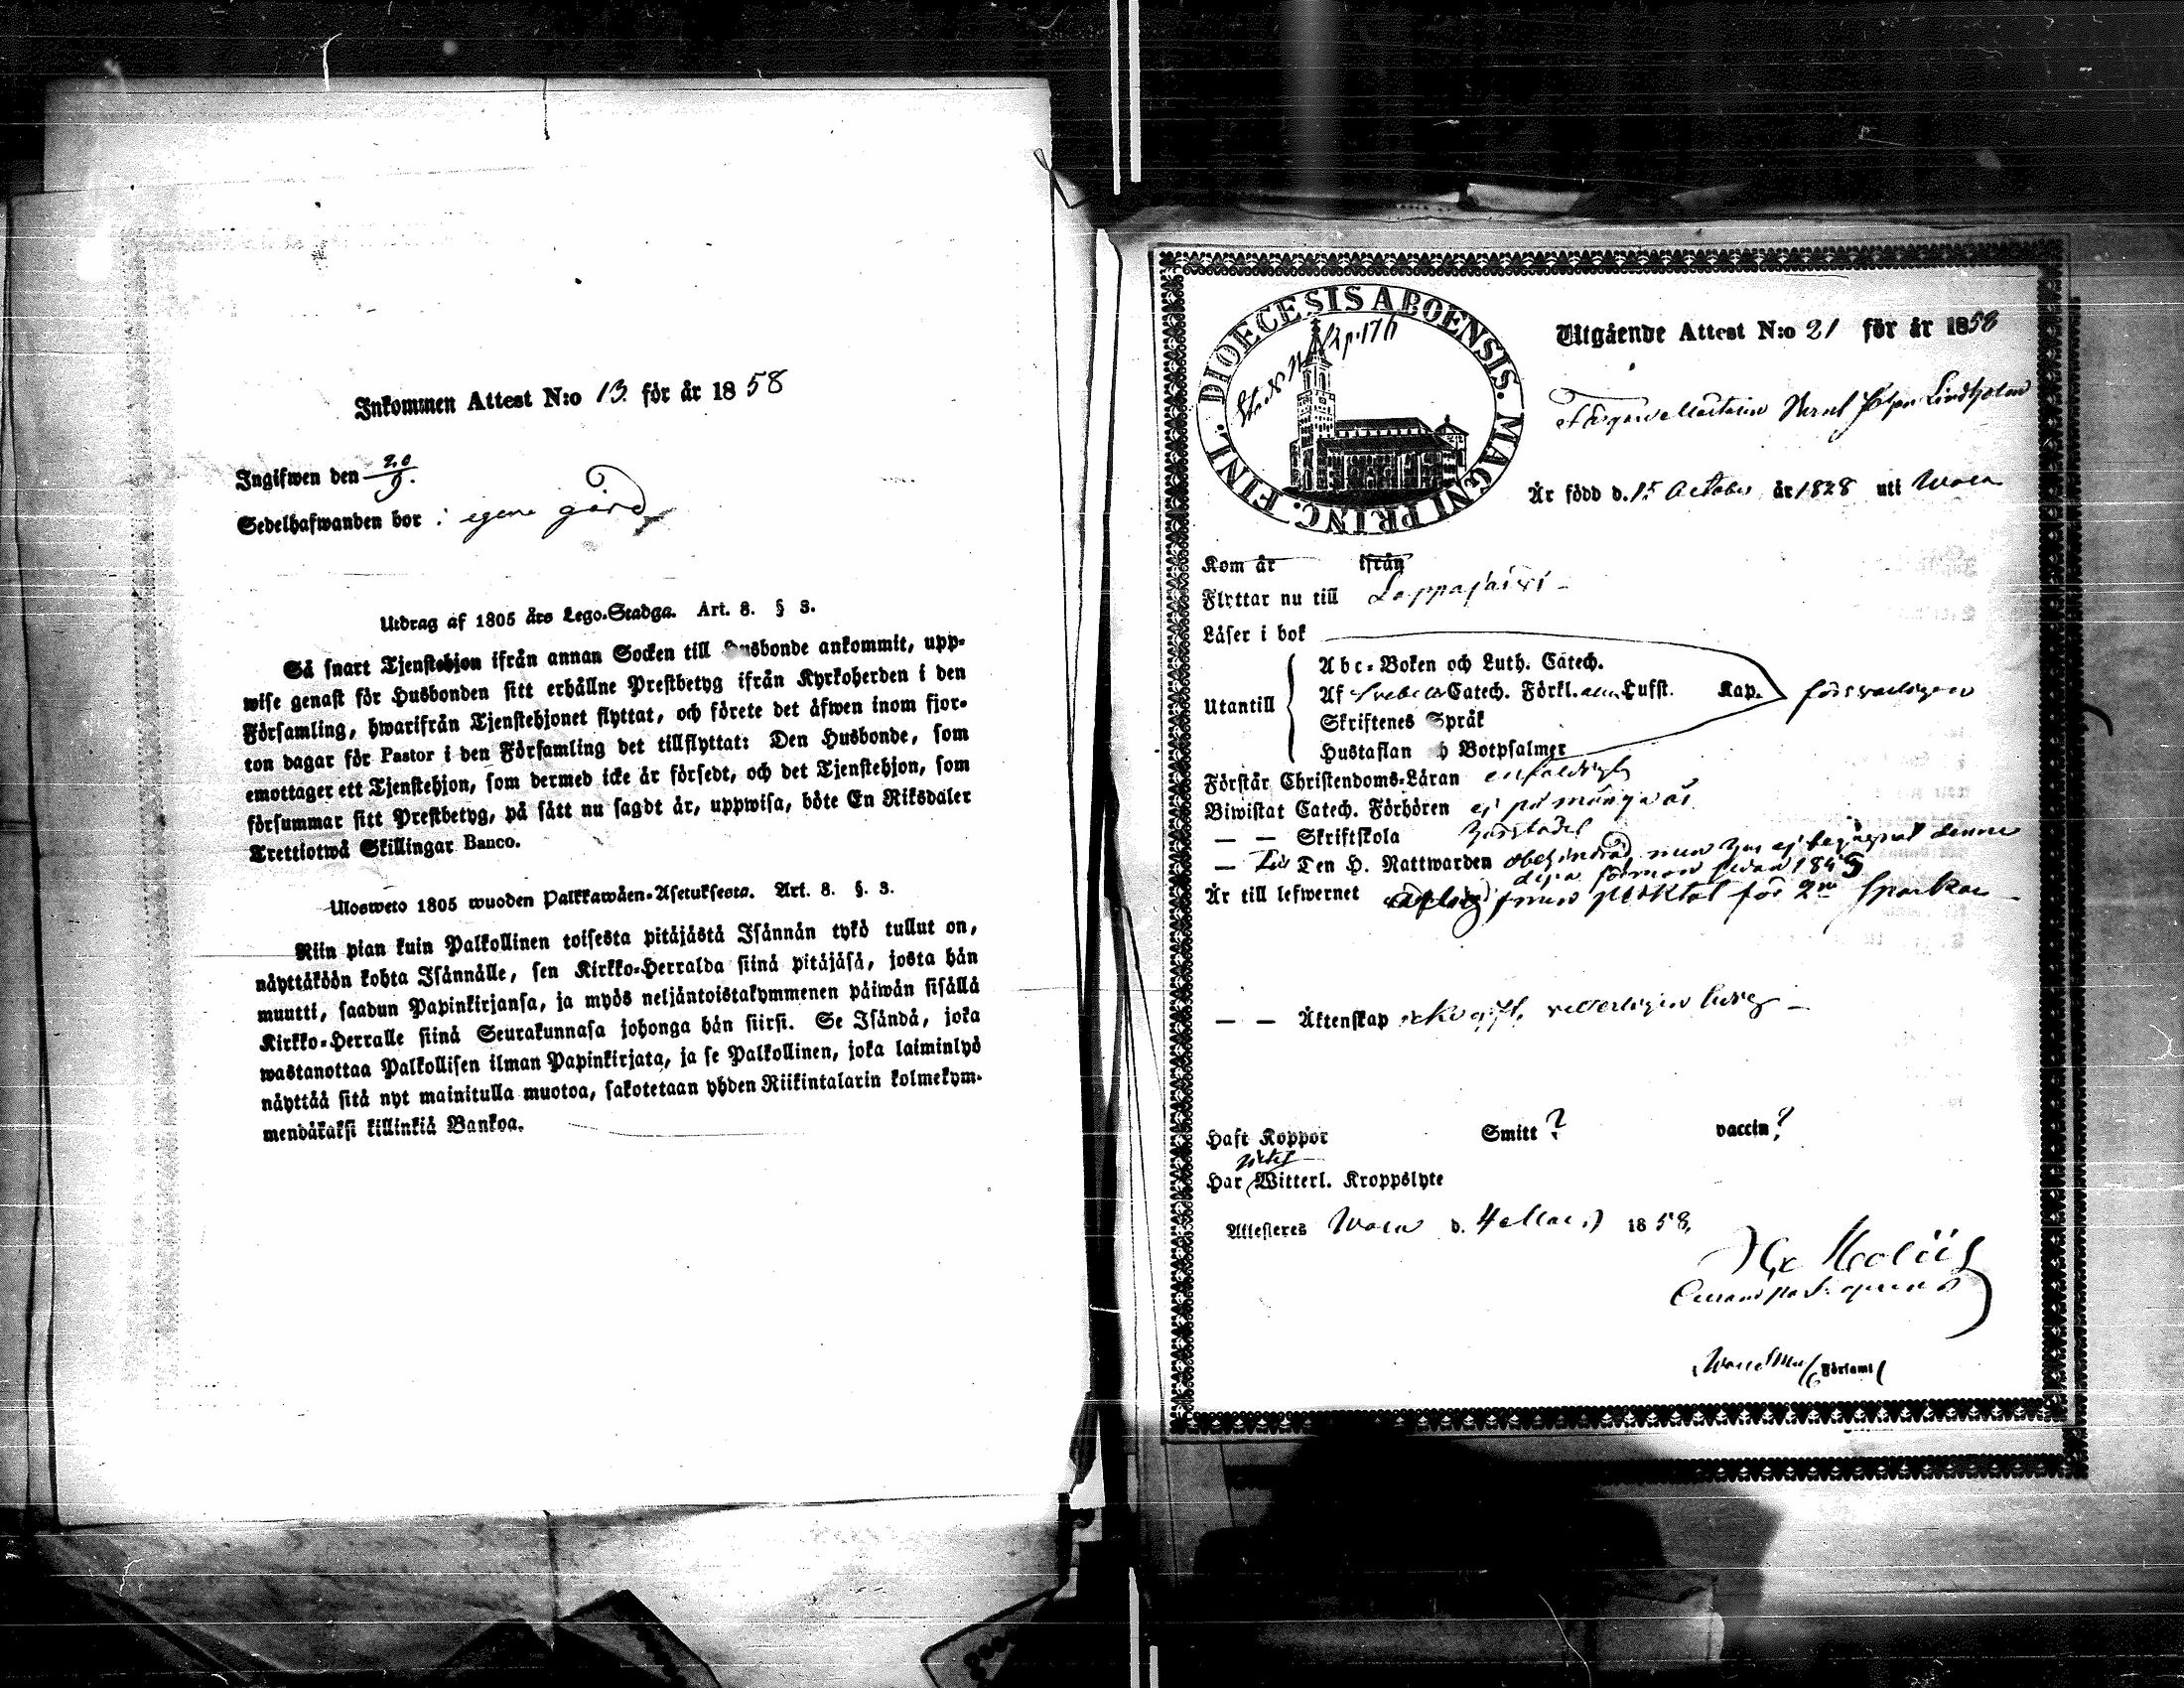 Inkommen Attest N:o 13. för år 1858
Ingifwen den 20/9.
Sedelhafwanden bor i egen gård
Utdrag af 1805 års Lego-Stadga. Art. 8. § 3.
Så snart Tjenstehjon ifrån annan Socken till Husbonde ankommit, upp-
wise genast för Husbonden sitt erhållne Prestbetyg ifrån Kyrkoherden i den
Församling, hwarifrån Tjenstehjonet flyttat, och förete det äfwen inom fjor-
ton dagar för Pastor i den Församling det tillflyttat: Den Husbonde, som
emottager ett Tjenstehjon, som dermed icke är försedt, och det Tjenstehjon, som
försummar sitt Prestbetyg, på sätt nu sagdt är, uppwisa, böte En Riksdaler
Trettiotwå Skillingar Banco.
Ulosweto 1805 wuoden Palkkawäen-Asetuksesta. Art. 8. §. 3.
Niin pian kuin Palkollinen toisesta pitäjästä Isännän tykö tullut on,
näyttäköön kohta Isännälle, sen Kirkko-Herralda siinä pitäjäsä, josta hän
muutti, saadun Papinkirjansa, ja myös neljäntoistakymmenen päiwän sisällä
Kirkko-Herralle siinä Seurakunnasa johonga hän siirsi. Se Isändä, joka
wastanottaa Palkollisen ilman Papinkirjata, ja se Palkollinen, joka laiminlyö
näyttää sitä nyt mainitulla muotoa, sakotetaan yhden Riikintalarin kolmekym-
mendäkaksi killinkiä Bankoa.
DIOECESIS ABOENSIS. MAGNI PRINC. FINL.
p. 176
Utgående Attest N:o 21 för år 1858
Lindholm
Är född d. 15 October år 1828 uti Wasa
Kom år ifrån
Flyttar nu till Lappajärvi
Läser i bok
Utantill
Abc-Boken och Luth. Catech.
Af Svebelii Catech. Förkl. Lufst. Kap. försvarligen
Skriftenes Språk
Hustaflan Botpsalmer
Förstår Christendoms-Läran enfaldigt
Biwistat Catech. Förhören ej på många år
— — Skriftskola
— Till Den H. Nattwarden obehindrad, men har ej begagnat denne
dyra förmon sedan 184
Är till lefwernet för 2
— — Äktenskap
Haft Koppor Smitt? vaccin?
intet
Har Witterl. Kroppslyte
Attesteres Wasa d. 4 1858.
Församl